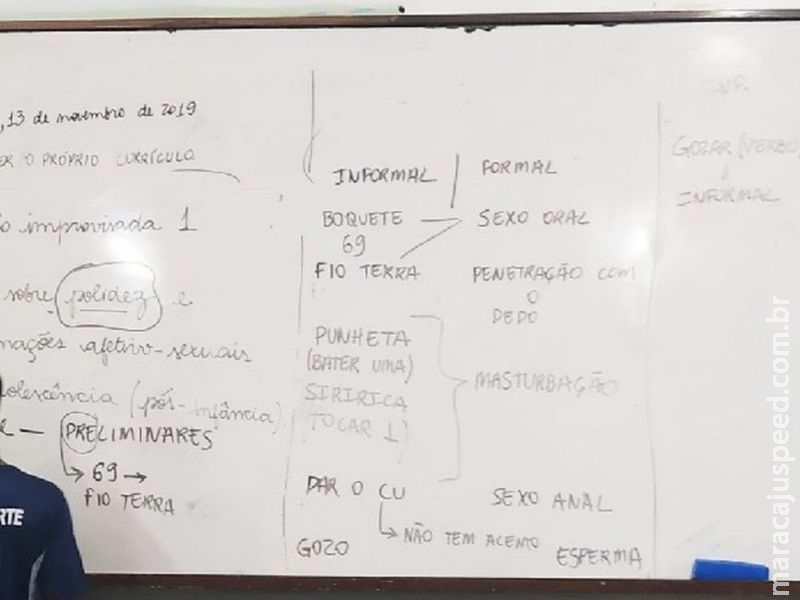 , 13 de novembro de 2019
ER O PRÓPRIO CURRÍCULO
o improvisada 1
sobre polidez e
mações afetivo-sexuais
dolescência (pós-infância).
e — PRELIMINARES
69 →
FIO TERRA
RTE
INFORMAL
BOQUETE
69
FIO TERRA
PUNHETA
(BATER UMA)
SIRIRICA
(TOCAR 1)
DAR O CU
NÃO TEM ACENTO
GOZO
FORMAL
SEXO ORAL
PENETRAÇÃO COM
O
DEDO
MASTURBAÇÃO
SEXO ANAL
ESPERMA
INF.
GOZAR (VERBO)
INFORMAL
maracajuspeed.com.br